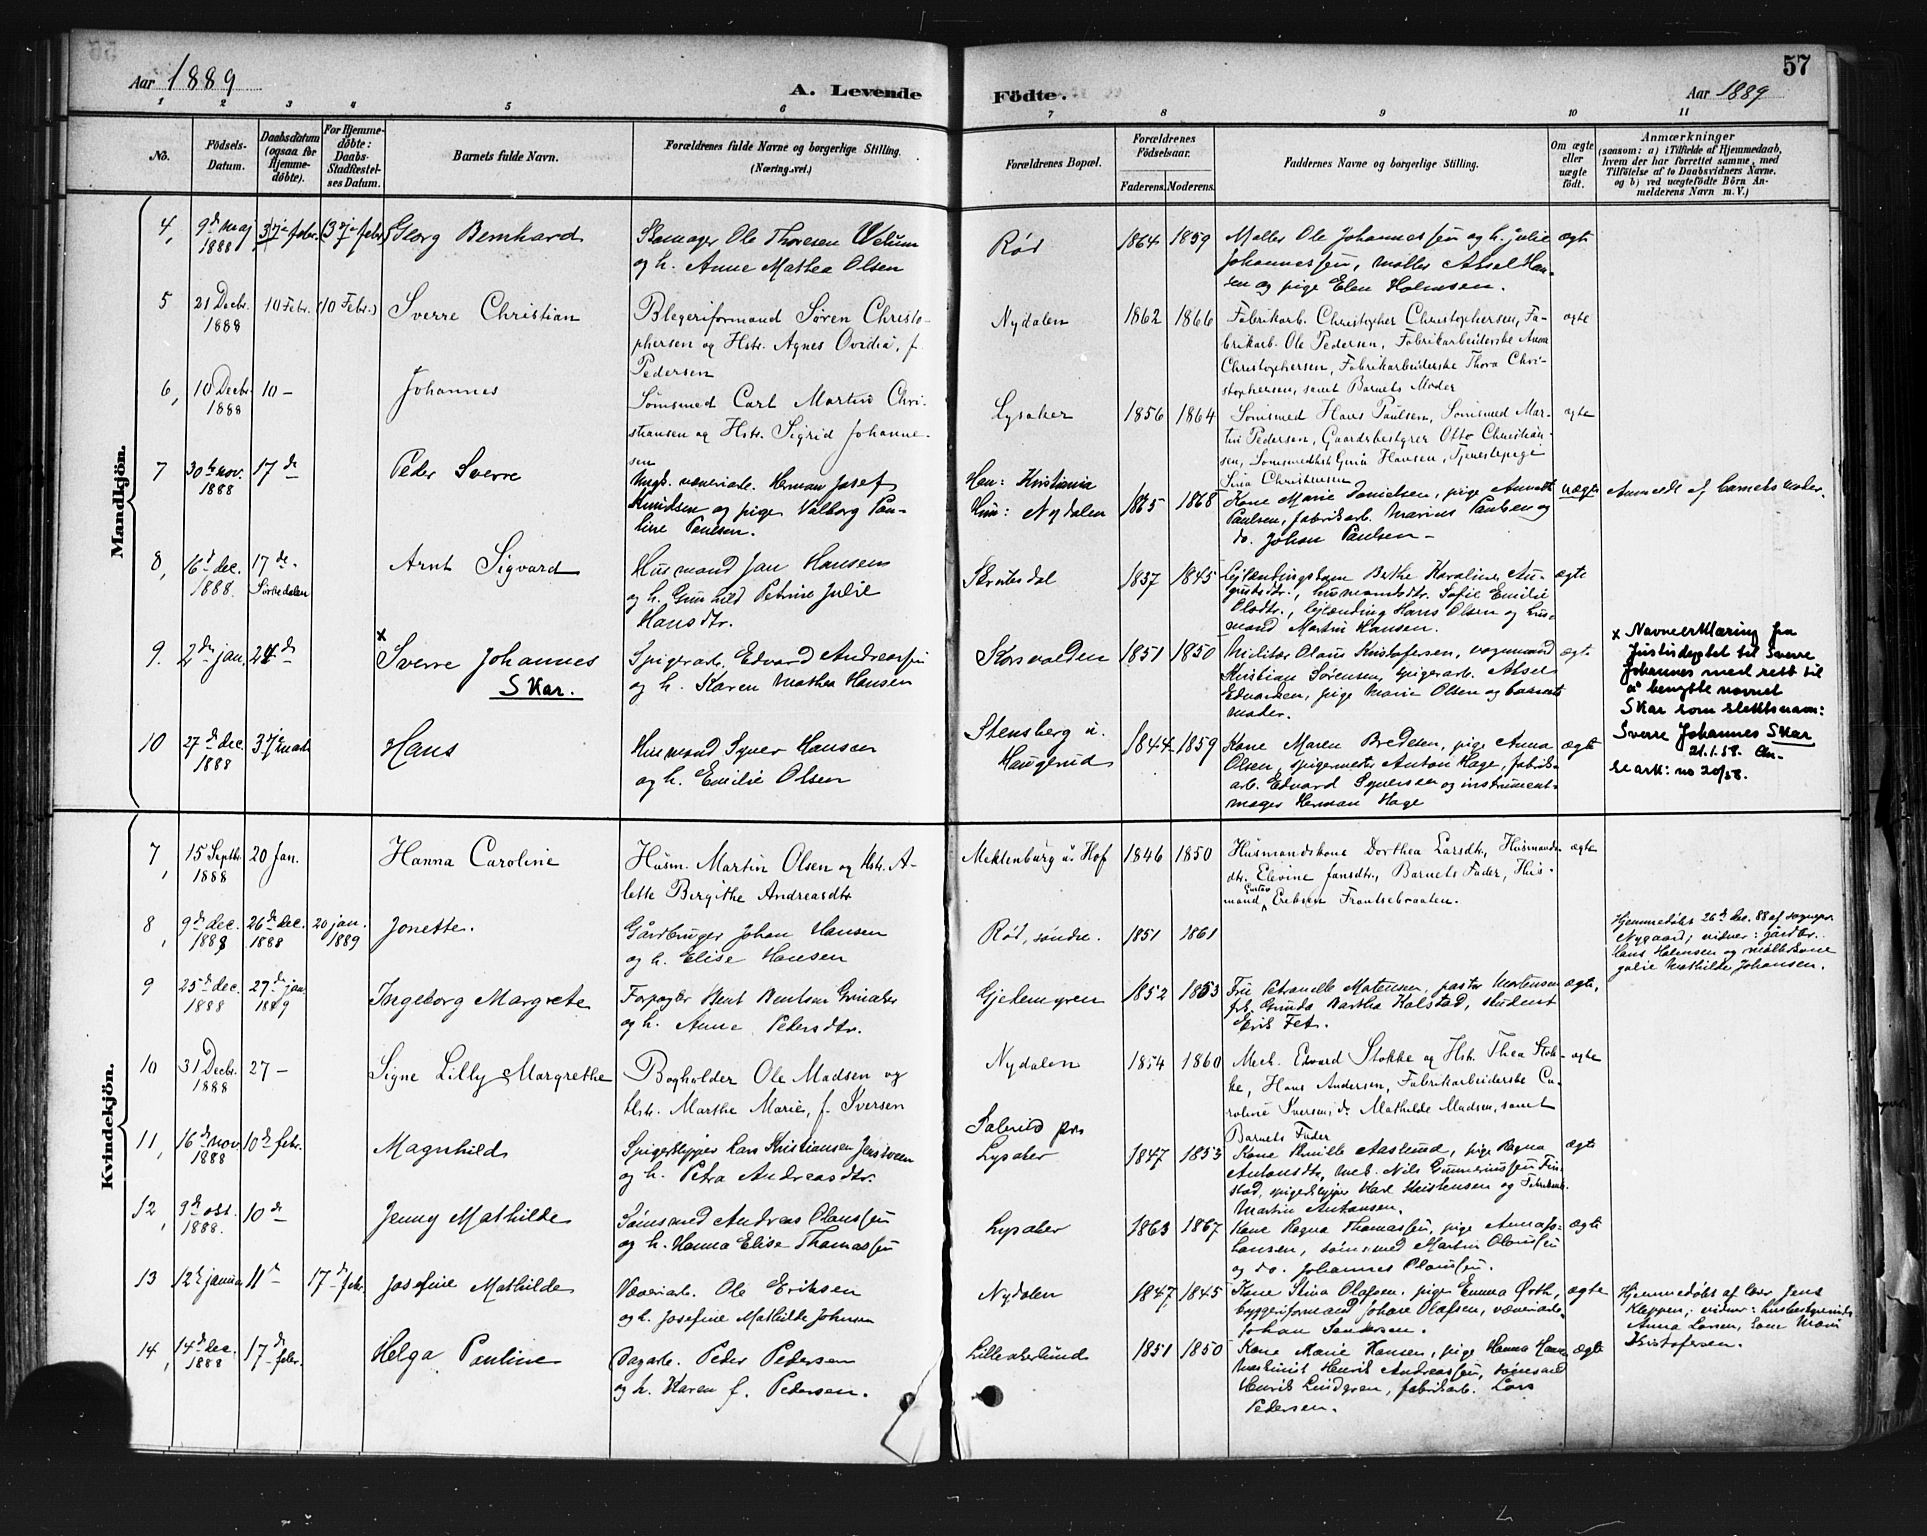 Aar 1889
A. Levende
Födte.
57
Aar 1889
1 2 3 4 5 6 7 8 9 10 11
No.
Födsels-Datum.
Daabsdatum (ogsaa for Hjemmedöbte).
For Hjemmedöbte: Daabs-Stadfæstelses Datum.
Barnets fulde Navn.
Forældrenes fulde Navne og borgerlige Stilling.
(Næringsvei.)
Forældrenes Bopæl.
Forældrenes Födselsaar.
Faderens. Moderens.
Faddernes Navne og borgerlige Stilling.
Om ægte eller uægte födt.
Anmærkninger
(saasom: a) i Tilfælde af Hjemmedaab, hvem der har forrettet samme, med Tilföielse af to Daabsvidners Navne, og b) ved uægtefödte Börn Anmelderens Navn m. V.)
Mandkjön.
4, 9de maj 1888 febr. Georg Bernhard
Ole Thoresen
og h. Anne Mathea Olsen
Rød 1864 1859
Møller Ole Johannessen og h. Julie
Johannessen, møller Aksel Han-
sen og pige Elen Holmsen.
ægte
5 21 Decbr. 1888 10 Febr. (10 Febr.) Sverre Christian
Blegeriformand Søren Christo-
phersen og Hstr. Agnes Ovidia, f.
Pedersen
Nydalen 1862 1866
Fabrikarb. Christopher Christophersen, Fa-
brikarb. Ole Pedersen, Fabrikarbeiderske Anna
Christophersen, Fabrikarbeiderske Thora Chri-
stophersen, samt Barnets Moder
ægte
6, 10 Decbr. 1888 10 – Johannes
Sømsmed Carl Martin Chri-
stiansen og Hstr. Sigrid Johanne-
sen
Lysaker 1856 1864
Sømsmed Hans Paulsen, Sømsmed Mar-
tin Pedersen, Gaardsbestyrer Otto Christian-
sen, Sømsmedhst. Gina Hansen, Tjenestepige
Sina Christensen
ægte
7 30te nov. 1888 17de Peder Sverre
Ungk. væveriarb. Herman Josef
Knudsen og pige Valborg Pau-
line Paulsen.
Han: Kristiania
Hun: Nydalen
1865 1868
Kone Marie Danielsen, pige Annette
Paulsen, fabrikarb. Marius Paulsen og
do. Johan Paulsen –
uægte
Anmeldt af barnets moder.
8, 16d dec. 1888. 17de Sørkedalen Arnt Sigvard
Husmand Jan Hansen
og h. Gunhild Petrine Julie
Hansdtr.
1837 1845
Berthe Karoline Au-
gustsdtr., husmandsdtr. Sofie Emilie
Olsdtr., leilænding Hans Olsen og hus-
mand Martin Hansen.
ægte
9. 2den jan. 24de x Sverre Johannes
Skar.
Spigerarb. Edvard Andreassen
og h. Karen Mathea Hansen
Korsvolden 1851 1850
Militær Olaus Kristofersen, vognmand
Kristian Sørensen, spigerarb. Aksel
Edvardsen, pige Marie Olsen og barnets
moder.
ægte
x Navneerklæring fra
Justisdeptet til Sverre
Johannes med rett til
å benytte navnet
Skar som slektsnavn:
Sverre Johannes Skar
21.1.58.
se ark: no 20/58.
10 27de dec. 1888 Hans
Husmand Syver Hansen
og h. Emilie Olsen
Stensberg u.
Haugerud
1844 1859
Kone Maren Bredesen, pige Anna
Olsen, spigermester Anton Hage, fabrik-
arb. Edvard Syversen og instrument-
mager Herman Hage
ægte
Kvindekjön.
7, 15 Septbr. 1888 20 Jan. Hanna Caroline
Husm. Martin Olsen og Hstr. A-
lette Birgithe Andreasdtr
Meklenburg u. Hof 1846 1850
Husmandskone Dorthea Larsdtr., Husmands-
dtr. Elevine Jansdtr., Barnets Fader, Hus-
mand Gustav Eriksen Frantsebraaten.
ægte
8, 9de dec. 1888 26de dec. 1888 20 jan. 1889 Jonette.
Gårdbruger Johan Hansen
og h. Elise Hansen
Rød, søndre. 1851 1861
Hjemmedøbt 26de dec. 88 af sognepr.
Nygaard; vidner: gårdbr.
Hans Halmsen og møllerkone
Julie Mathilde Johansen.
9 25de dec. 1888 27de jan. 1889 Ingeborg Margrete
Forpagter Bent Bentsen
og h. Anne Pedersdtr.
Gjetemyren 1852 1853
Fru Petronelle Mortensen, pastor Mortensen
frk. Gunda Martha Kolstad, student
Erik Fet.
ægte,
10 31 Decbr. 1888 27 – Signe Lilly Margrethe
Bogholder Ole Madsen og
Hstr. Marthe Marie, f. Iversen
Nydalen 1854 1860
Mek. Edvard Stokke og Hstr. Thea Stok-
ke, Hans Andersen, Fabrikarbeiderske Ca-
roline Iversen, do Mathilde Madsen, samt
Barnets Fader
ægte
11, 16de nov. 1888 10de febr. Magnhild
Spigerklipper Lars Kristiansen
og h. Petra Andreasdtr.
Lysaker 1847 1853
Kone Aaslund, pige Ragna
Antonsdtr, mek. Nils Gunneriussen
spigerklipper Karl Kristensen og
Martin Antonsen.
ægte
12, 9de okt. 1888. 10de Jenny Mathilde
Sømsmed Andreas Olaussen
og h. Hanna Elise Thomassen
Lysaker 1863 1867
Kone Ragna Thomassen, pige Anna Jo-
hansen, sømsmed Martin Olaussen
og do. Johannes Olaussen.
ægte
13 12te januar 11te 17de febr. Josefine Mathilde
Væveriarb. Ole Eriksen
og h. Josefine Mathilde Johnsen
Nydalen 1847 1845
Kone Stina Olafsen, pige Emma Orth,
bryggeriformand Johan Olafsen, væveriarb.
Johan Sandersen.
ægte
Hjemmedøbt af lær. Jens
Kleppen; vidner:
Anna Larsen,
Kristofersen.
14, 14de dec. 1888 17de febr. Helga Pauline
Dagarb. Peder Pedersen
og h. Karen f. Pedersen.
Lilleakerlund 1851 1850
Kone Marie Hansen, pige Hanna Han-
Maskinist Henrik Andreassen, sømsmed
Henrik Lindgren, fabrikarb. Lars
Pedersen.
ægte